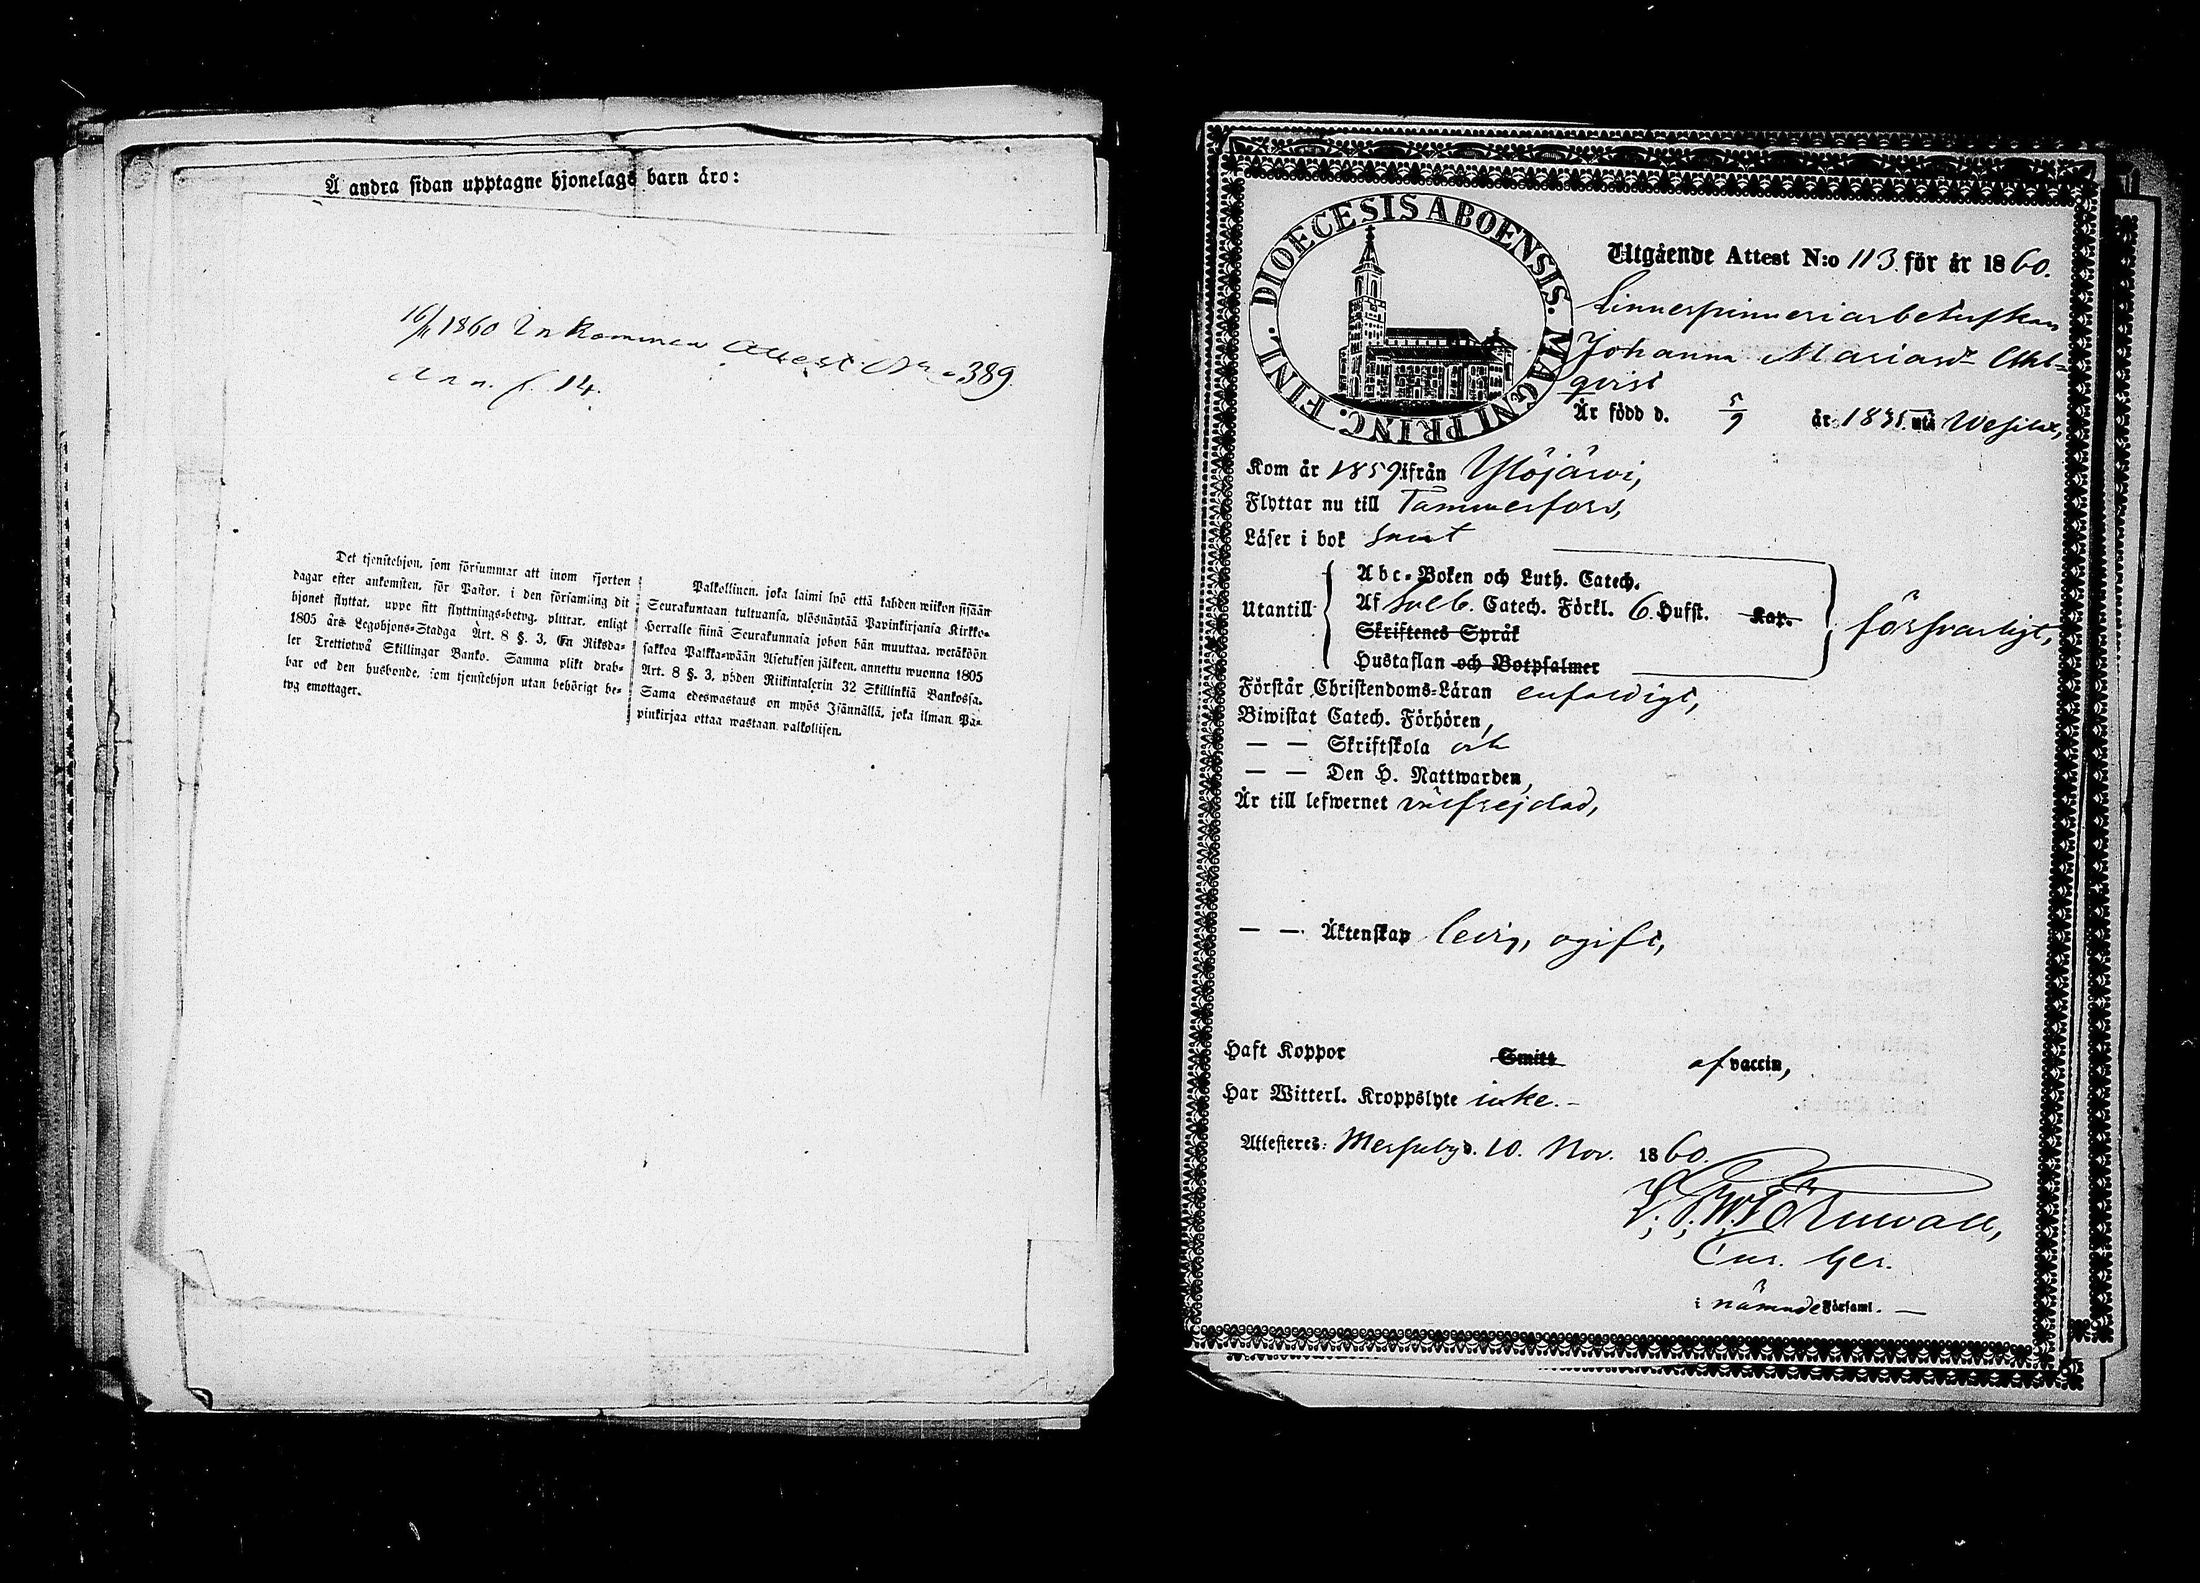 Å andra sidan upptagne hjonelags barn äro:
16/11 1860 Inkommen Attest No 389.
Ann. f. 14.
Det tjenstehjon, som försummar att inom fjorton
dagar efter ankomsten, för Pastor, i den församling dit
hjonet flyttat, uppe sitt flyttnings-betyg, pliktar, enligt
1805 års Legohjons-Stadga Art. 8 §. 3, En Riksda-
ler Trettiotwå Skillingar Banko. Samma plikt drab-
bar ock den husbonde, som tjenstehjon utan behörigt be-
tyg emottager.
Palkollinen, joka laimi lyö että kahden wiikon sisään
Seurakuntaan tultuansa, ylösnäytää Papinkirjansa Kirkko-
Herralle siinä Seurakunnasa johon hän muuttaa, wetäköön
sakkoa Palkka-wään Asetuksen jälkeen, annettu wuonna 1805
Art. 8 §. 3, yhden Riikintalerin 32 Skillinkiä Bankossa.
Sama edeswastaus on myös Isännällä, joka ilman Pa-
pinkirjaa ottaa wastaan palkollisen.
DIOECESIS ABOENSIS. MAGNI PRINC. FINL.
Utgående Attest N:o 113. för år 1860.
Linnespinneriarbeterskan
Johanna Mariasdr Ahl-
qvist
Är född d. 5/9 år 1835. uti Wesilax,
Kom år 1859 ifrån Ylöjärvi,
Flyttar nu till Tammerfors,
Läser i bok sant
Abc-Boken och Luth. Catech.
Utantill Af Sveb. Catech. Förkl. 6. Hufst. Kap. försvarligt,
Skriftenes Språk
Hustaflan och Botpsalmer
Förstår Christendoms-Läran enfaldigt,
Biwistat Catech. Förhören,
— — Skriftskola och
— — Den H. Nattwarden,
Är till lefwernet välfrejdad,
— — Äktenskap ledig, ogift,
Haft Koppor Smitt af vaccin,
Har Witterl. Kroppslyte icke. –
Attesteres: Messuby d. 10. Nov. 1860.
Cur. Ger.
i nämnde Församl. —